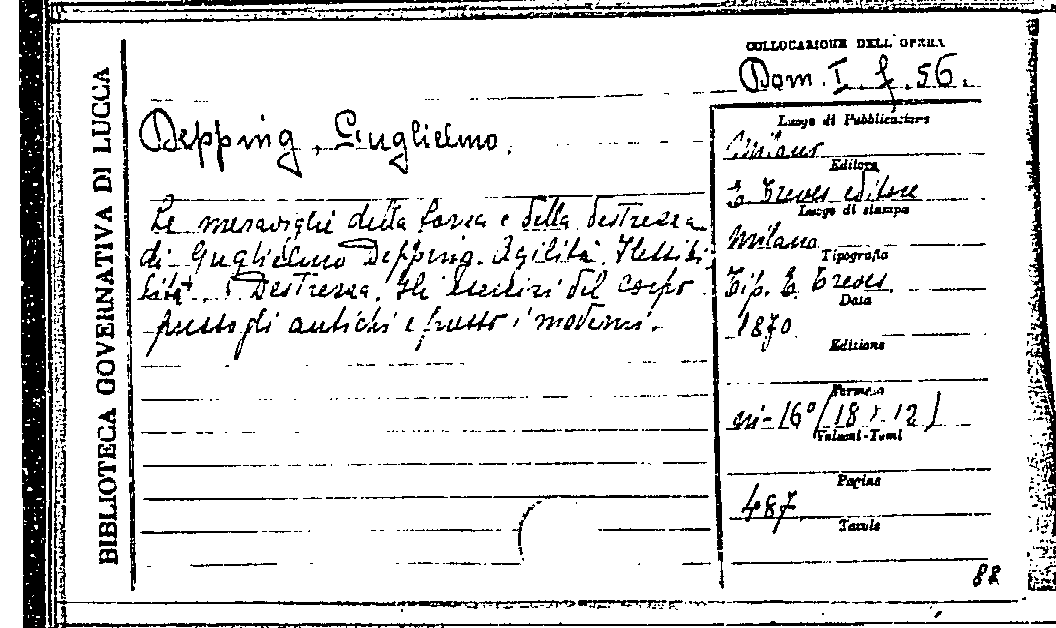 BIBLIOTECA GOVERNATIVA DI LUCCA
COLLOCAZIONE DELL'OPERA
Dom. I. f. 56.
Depping, Guglielmo.
Le meraviglie della forza e della destrezza
di Guglielmo Depping. Agilità. Flessibi-
lità. Destrezza. Gli esercizi del corpo
presso gli antichi e presso i moderni.
Luogo di Pubblicazione
Milano
Editore
E. Treves editore
Luogo di stampa
Milano
Tipografia
Tip. E. Treves.
Data
1870
Edizione
Formato
in-16° (18 x 12)
Volumi-Tomi
Pagine
487
Tavole
88